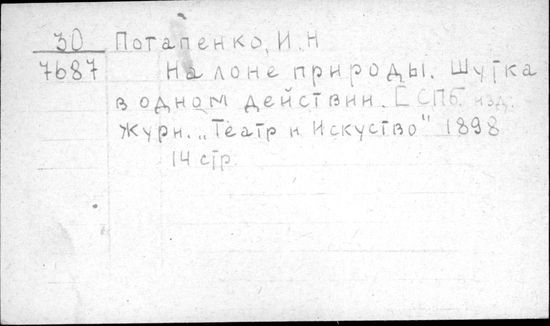 30 Потапенко, И.Н
7687 На лоне природы. Шутка
в одном действии. [СПБ. изд.
журн. „Театр и Искуство" 1898
14 стр.